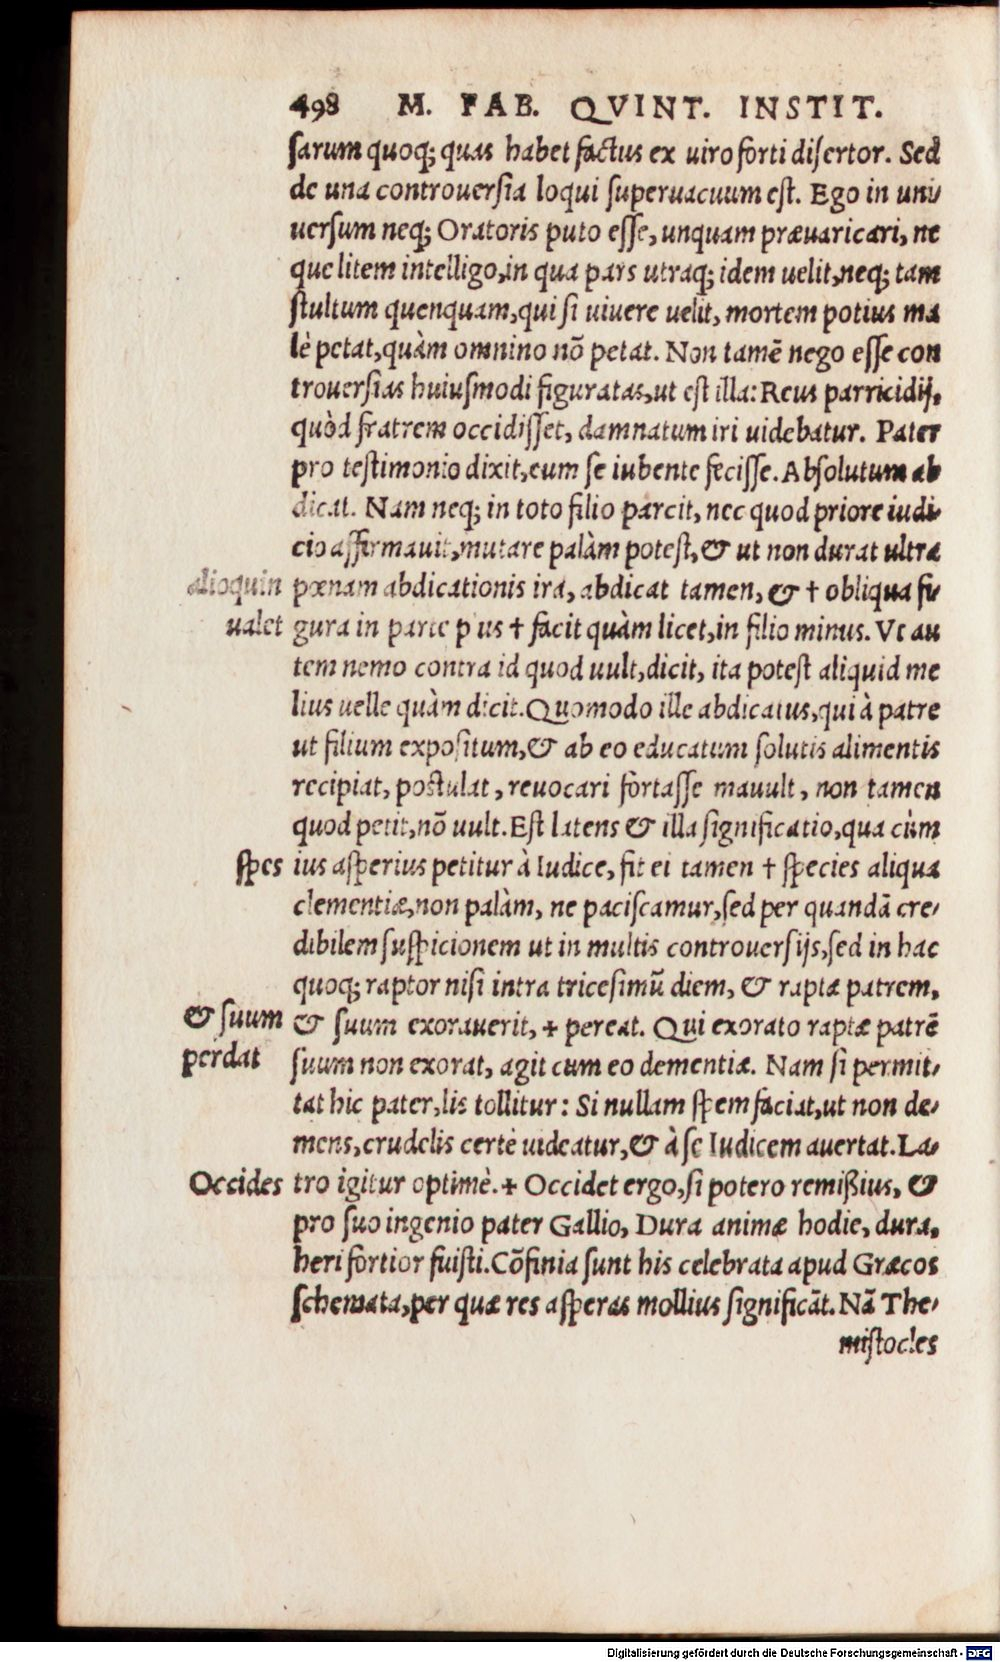 498 M. FAB. QVINT. INSTIT.
sarum quoq; quas habet factus ex uiro forti disertor. Sed
de una controuersia loqui superuacuum est. Ego in uni-
uersum neq; Oratoris puto esse, unquam præuaricari, ne
que litem intelligo, in qua pars utraq; idem uelit, neq; tam
stultum quenquam, qui si uiuere uelit, mortem potius ma
lè petat, quàm omnino nõ petat. Non tamẽ nego esse con
trouersias huiusmodi figuratas, ut est illa: Reus parricidij,
quòd fratrem occidisset, damnatum iri uidebatur. Pater
pro testimonio dixit, eum se iubente fecisse. Absolutum ab
dicat. Nam neq; in toto filio parcit, nec quod priore iudi-
cio affirmauit, mutare palàm potest, & ut non durat ultra
alioquin pœnam abdicationis ira, abdicat tamen, & † obliqua fi-
ualet gura in parte p us † facit quàm licet, in filio minus. Vt au
tem nemo contra id quod uult, dicit, ita potest aliquid me
lius uelle quàm dicit. Quomodo ille abdicatus, qui à patre
ut filium expositum, & ab eo educatum solutis alimentis
recipiat, postulat, reuocari fortasse mauult, non tamen
quod petit, nõ uult. Est latens & illa significatio, qua cùm
spes ius asperius petitur à Iudice, fit ei tamen † species aliqua
clementiæ, non palàm, ne paciscamur, sed per quandã cre-
dibilem suspicionem ut in multis controuersijs, sed in hac
quoq; raptor nisi intra tricesimũ diem, & raptæ patrem,
& suum & suum exorauerit, + pereat. Qui exorato raptæ patrẽ
perdat suum non exorat, agit cum eo dementiæ. Nam si permit-
tat hic pater, lis tollitur: Si nullam spem faciat, ut non de-
mens, crudelis certè uideatur, & à se Iudicem auertat. La-
Occides tro igitur optimè. + Occidet ergo, si potero remißius, &
pro suo ingenio pater Gallio, Dura animæ hodie, dura,
heri fortior fuisti. Cõfinia sunt his celebrata apud Græcos
schemata, per quæ res asperas mollius significãt. Nã The-
mistocles
Digitalisierung gefördert durch die Deutsche Forschungsgemeinschaft - DFG